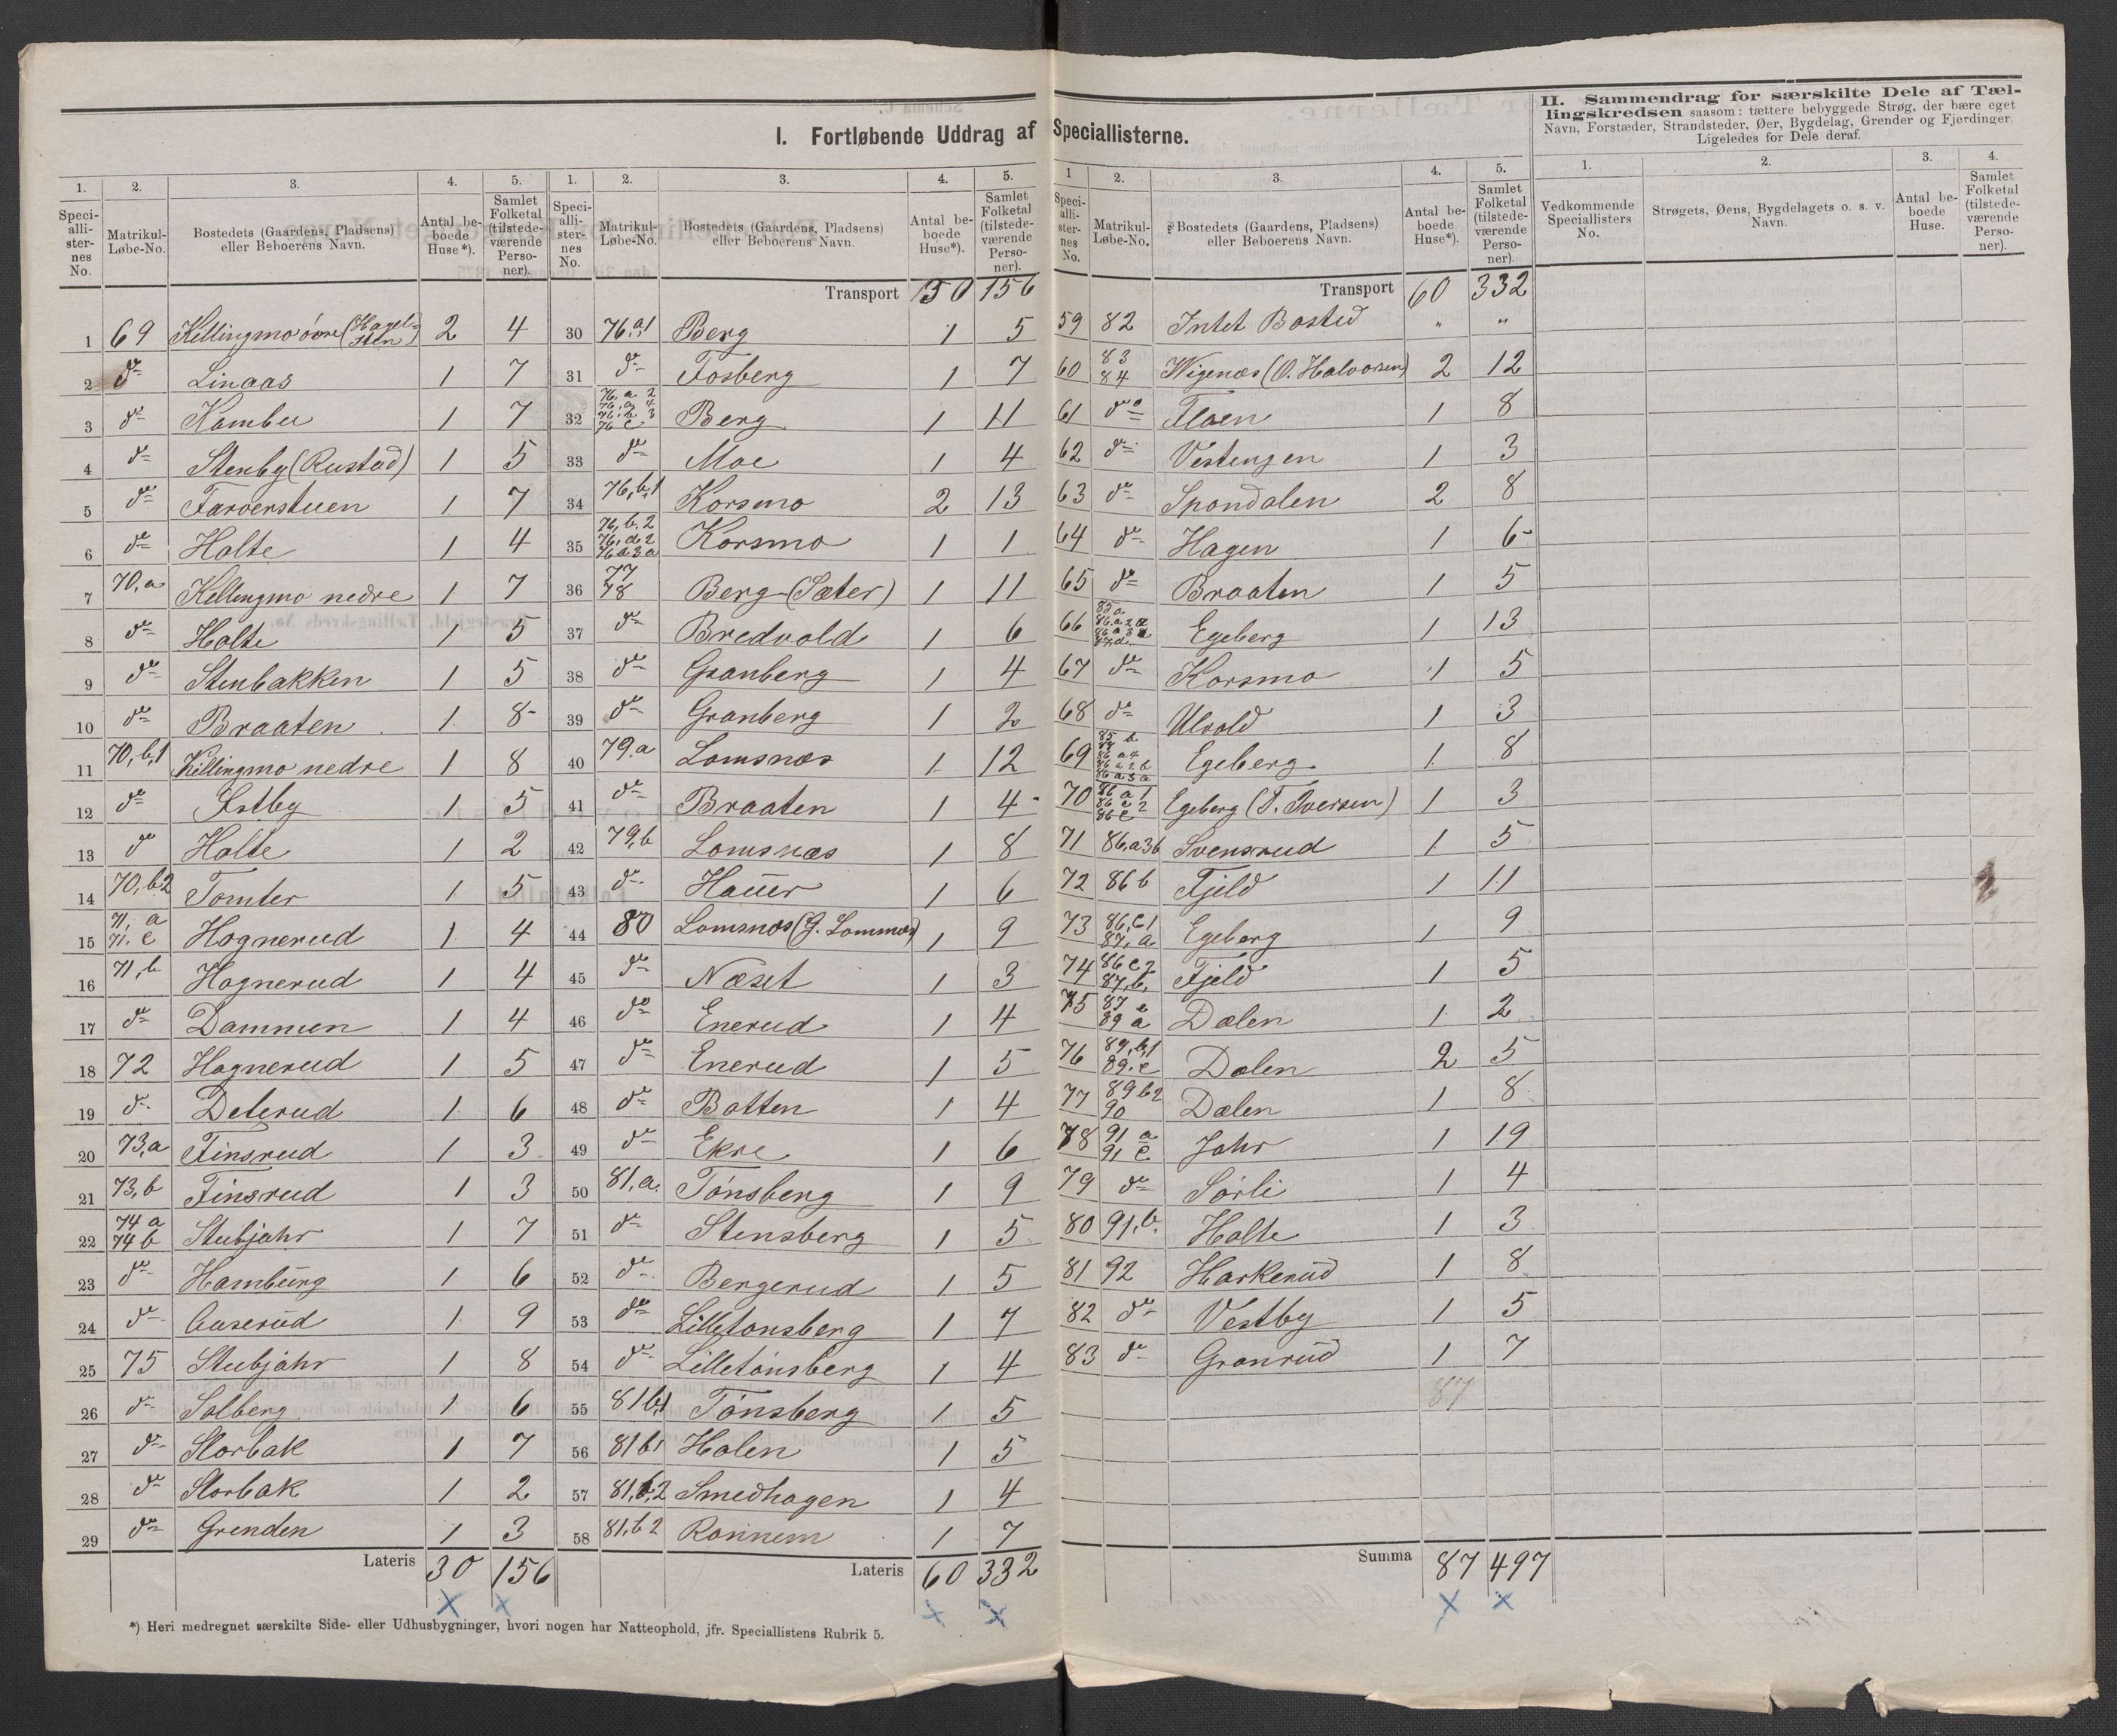 I. Fortløbende Uddrag af Speciallisterne.
II. Sammendrag for særskilte Dele af Tæl-
lingskredsen saasom: tættere bebyggede Strøg, der bære eget
Navn, Forstæder, Strandsteder, Øer, Bygdelag, Grender og Fjerdinger.
Ligeledes for Dele deraf.
1. 2. 3. 4. 5.
Speciallisternes No. Matrikul-Løbe-No. Bostedets (Gaardens, Pladsens) eller Beboerens Navn. Antal beboede Huse*). Samlet Folketal (tilstedeværende Personer).
1 69 Killingmo övre (Hagelsten) 2 4
2 do Linaas 1 7
3 do Kambu 1 7
4 do Stenby (Rustad) 1 5
5 do Farverstuen 1 7
6 do Holte 1 4
7 70,a Killingmo nedre 1 7
8 do Holte 1 5
9 do Stenbakken 1 5
10 do Braaten 1 8
11 70,b,1 Killingmo nedre 1 8
12 do Østby 1 5
13 do Holte 1 2
14 70,b2 Tomter 1 5
15 71,a 71.c Hagnerud 1 4
16 71,b Hagnerud 1 4
17 do Dammen 1 4
18 72 Hagnerud 1 5
19 do Delerud 1 6
20 73,a Finsrud 1 3
21 73,b Finsrud 1 3
22 74 a 74 b Stubjahr 1 7
23 do Hamburg 1 6
24 do Guserud 1 9
25 75 Stubjahr 1 8
26 do Solberg 1 6
27 do Storbak 1 7
28 do Storbak 1 2
29 do Grenden 1 3
Lateris 30 156
1. 2. 3. 4. 5.
Speciallisternes No. Matrikul-Løbe-No. Bostedets (Gaardens, Pladsens) eller Beboerens Navn. Antal beboede Huse*). Samlet Folketal (tilstedeværende Personer).
Transport 30 156
30 76.a1 Berg 1 5
31 do Fosberg 1 7
32 76,a 2 76,a 4 76,b 3 76 c Berg 1 11
33 do Moe 1 4
34 76,b,1 Korsmo 2 13
35 76,b.2 76,d2 76 a 3 a Korsmo 1 1
36 77 78 Berg (Sæter) 1 11
37 do Bredvold 1 6
38 do Granberg 1 4
39 do Granberg 1 2
40 79.a Lomsnæs 1 12
41 do Braaten 1 4
42 79,b Lomsnæs 1 8
43 do Hauer 1 6
44 80 Lomsnæs (G. Lommæs) 1 9
45 do Næset 1 3
46 do Enerud 1 4
47 do Enerud 1 5
48 do Batten 1 4
49 do Ekre 1 6
50 81,a. Tönsberg 1 9
51 do Stensberg 1 5
52 do Bergerud 1 5
53 do Lilletonsberg 1 7
54 do Lilletönsberg 1 4
55 81b,1 Tönsberg 1 5
56 81b1 Holen 1 5
57 81,b,2 Smedhagen 1 4
58 81,b2 Ronnem 1 7
Lateris 60 332
1 2. 3. 4. 5.
Speciallisternes No. Matrikul-Løbe-No. Bostedets (Gaardens, Pladsens) eller Beboerens Navn. Antal beboede Huse*). Samlet Folketal (tilstedeværende Personer).
Transport 60 332
59 82 Intet Bosted " "
60 83 84 Wigenæs (O. Halvorsen) 2 12
61 do Floen 1 8
62 do Vestengen 1 3
63 do Spondalen 2 8
64 do Hagen 1 6
65 do Braaten 1 5
66 85 a 86.a 2 a 86 a 3 a 87,d Egeberg 1 13
67 do Korsmo 1 5
68 do Ulvold 1 3
69 85 b 86 a4 86 a 2 b 86 a 3 a Egeberg 1 8
70 86 a 1 86 c 2 86 c Egeberg (T. Iversen) 1 3
71 86,a3b Svensrud 1 5
72 86 b Fjeld 1 11
73 86,c1 87,a Egeberg 1 9
74 86 c2 87,b, Fjeld 1 5
75 87 c 89 a Dælen 1 2
76 89,b,1 89.c Dælen 2 5
77 89 b2 90 Dælen 1 8
78 91 a 91 c Jahr 1 19
79 do Sörli 1 4
80 91,b. Holte 1 3
81 92 Harkerud 1 8
82 do Vestby 1 5
83 do Granrud 1 7
87
Summa 87 497
1. 2. 3. 4.
Vedkommende Speciallisters No. Strøgets, Øens, Bygdelagets o. s. v. Navn. Antal beboede Huse. Samlet Folketal (tilstedeværende Personer).
*) Heri medregnet særskilte Side- eller Udhusbygninger, hvori nogen har Natteophold, jfr. Speciallistens Rubrik 5.